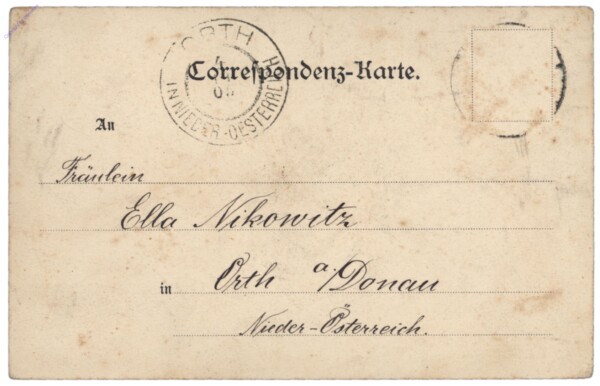 ORTH
IN NIEDER-OESTERREICH
Correspondenz-Karte.
An
Fräulein
Ella Nikowitz
in Orth a/Donau
Nieder-Österreich.